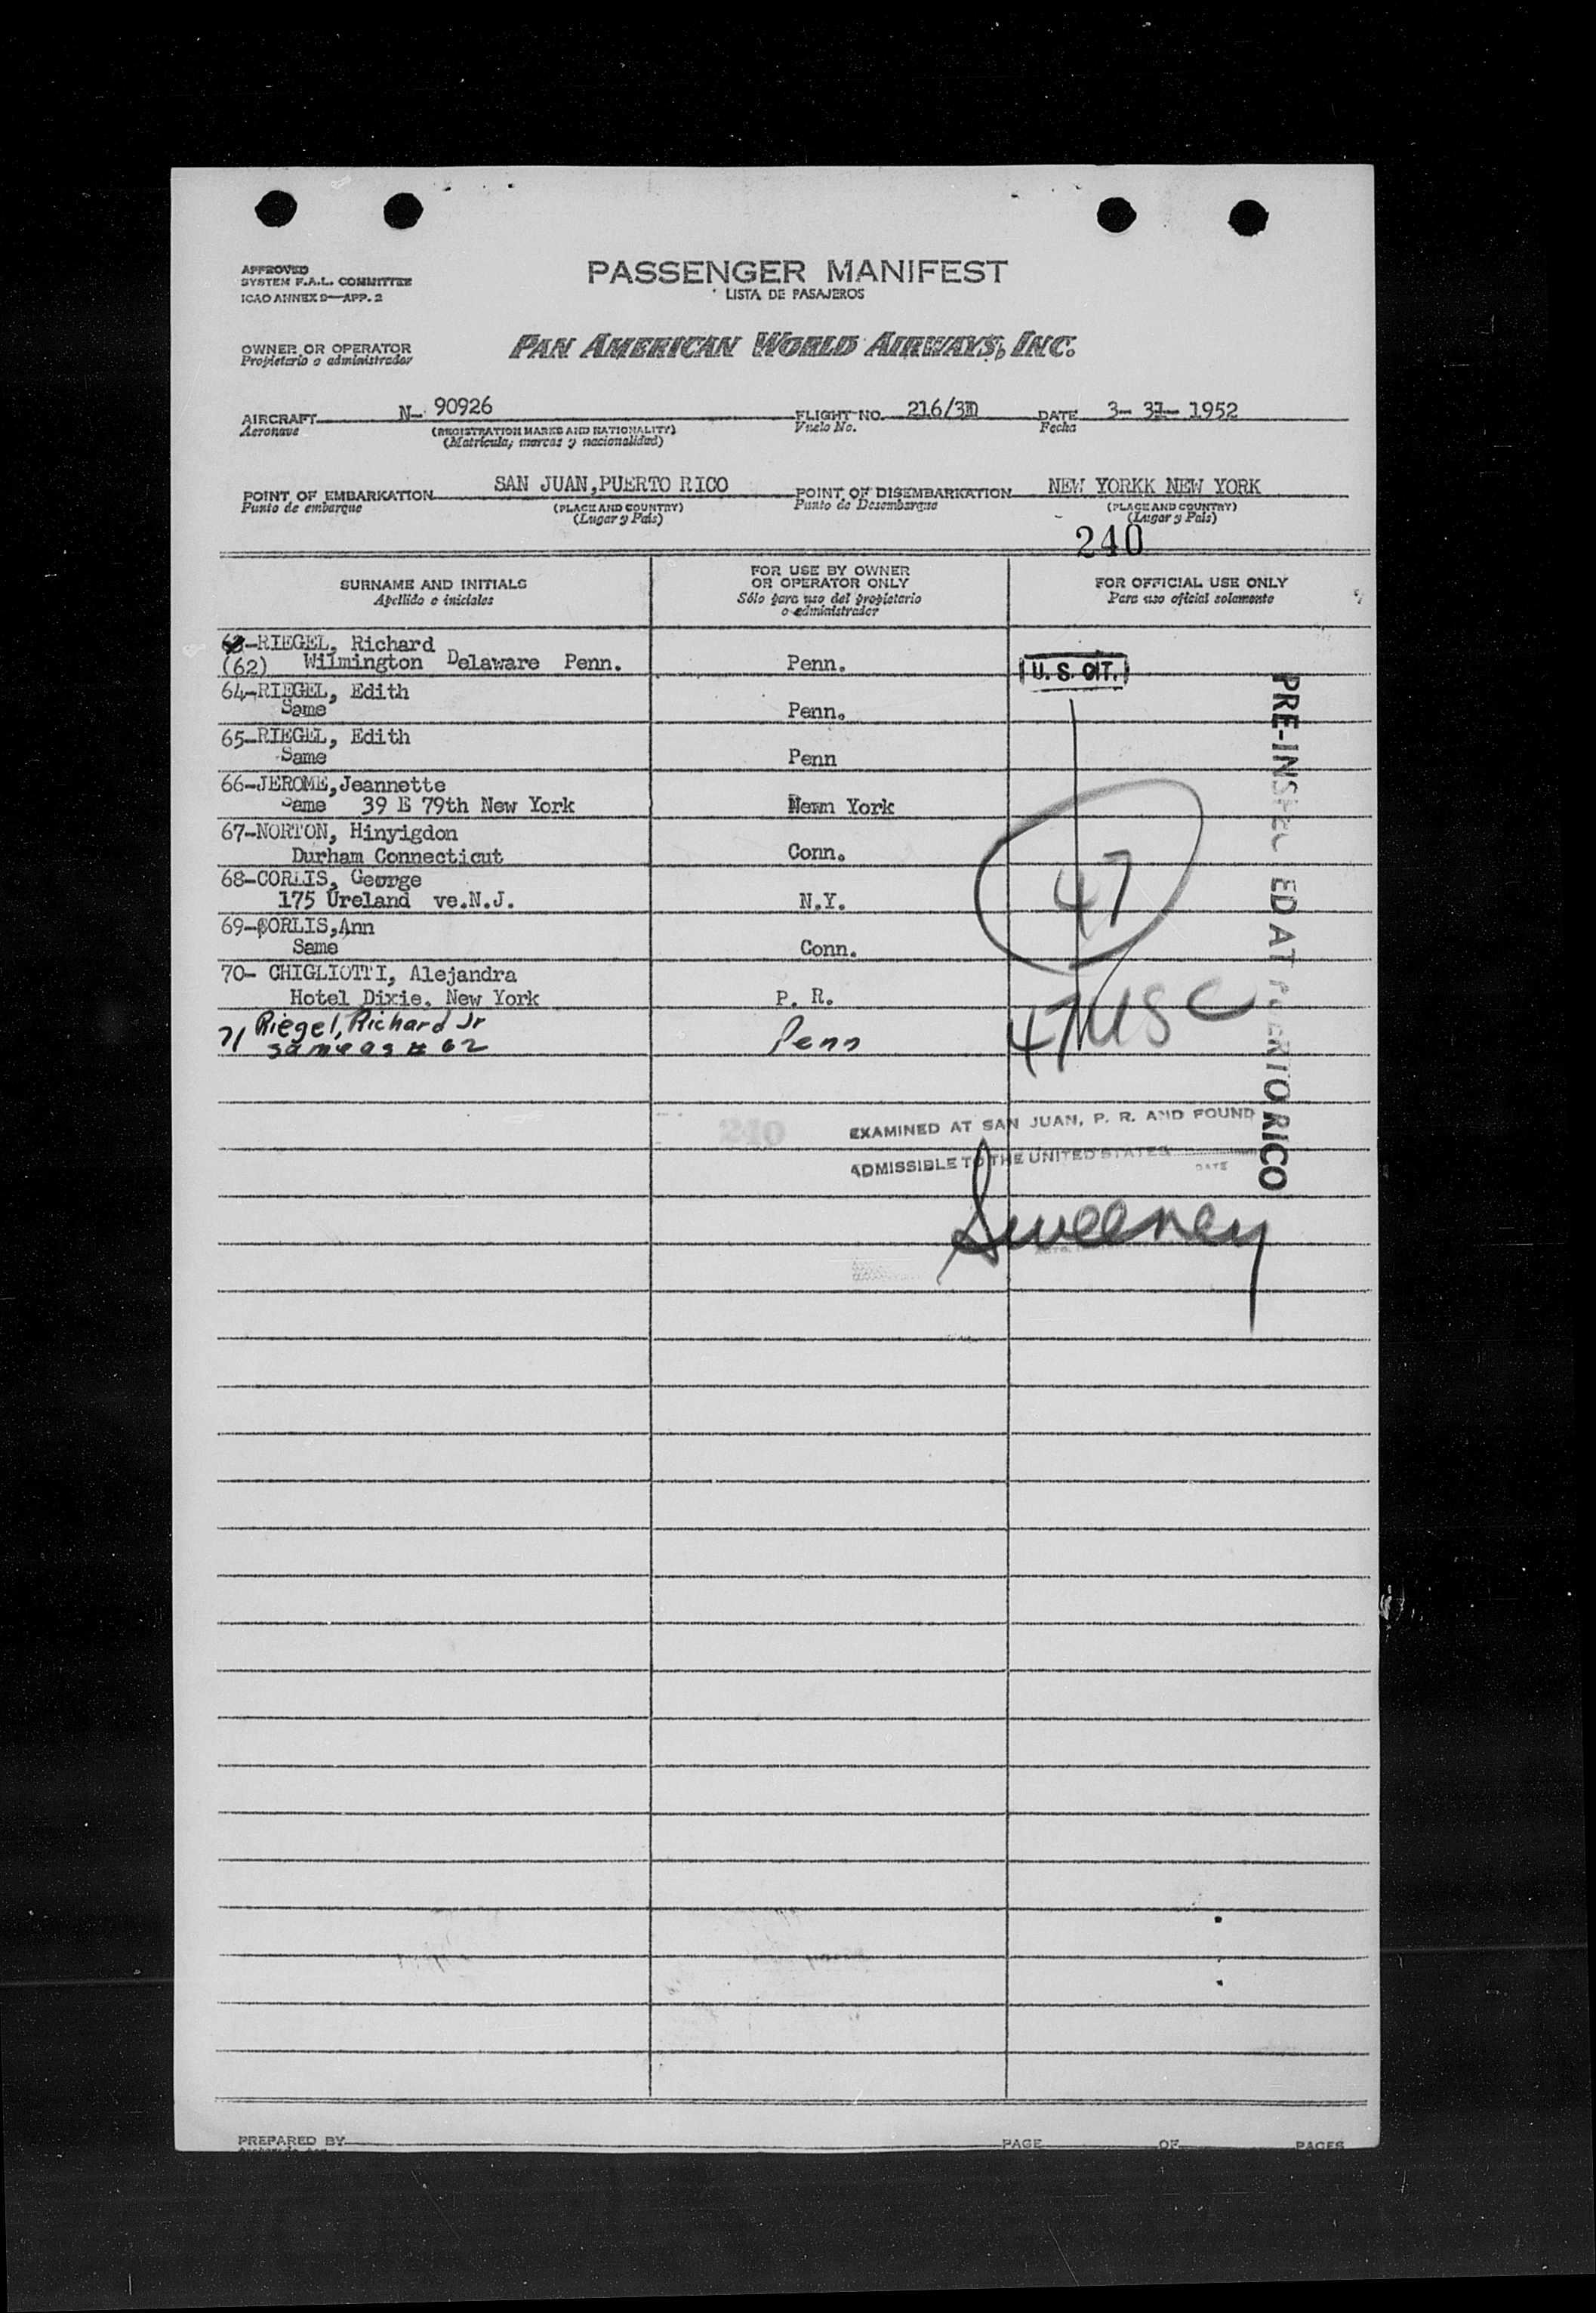 APPROVED
SYSTEM F.A.L. COMMITTEE
ICAO ANNEX 9—APP. 2
PASSENGER MANIFEST
LISTA DE PASAJEROS
OWNER OR OPERATOR
Propietario o administrador
PAN AMERICAN WORLD AIRWAYS, INC.
AIRCRAFT N- 90926 FLIGHT NO. 216/31 DATE 3- 31- 1952
Aeronave (REGISTRATION MARKS AND NATIONALITY) Vuelo No. Fecha
(Matrícula, marcas y nacionalidad)
POINT OF EMBARKATION SAN JUAN,PUERTO RICO POINT OF DISEMBARKATION NEW YORKK NEW YORK
Punto de embarque (PLACE AND COUNTRY) Punto de Desembarque (PLACE AND COUNTRY)
(Lugar y País) (Lugar y País)
240
SURNAME AND INITIALS
Apellido e iniciales
FOR USE BY OWNER
OR OPERATOR ONLY
Sólo para uso del propietario
o administrador
FOR OFFICIAL USE ONLY
Para uso oficial solamente
63-RIEGEL, Richard
(62) Wilmington Delaware Penn. Penn. U. S. CIT.
64-RIEGEL, Edith
Same Penn.
65-RIEGEL, Edith
Same Penn
66-JEROME,Jeannette
Same 39 E 79th New York New York
67-NORTON, Hinyigdon
Durham Connecticut Conn.
68-CORLIS, George
175 Ureland ve.N.J. N.Y.
69-CORLIS,Ann
Same Conn.
70- CHIGLIOTTI, Alejandra
Hotel Dixie, New York P. R.
71 Riegel, Richard Jr
same as # 62 Penn
47
47 USC
PRE-INSPECTED AT PUERTO RICO
240
EXAMINED AT SAN JUAN, P. R. AND FOUND
ADMISSIBLE TO THE UNITED STATES
DATE
Sweeney
PREPARED BY PAGE OF PAGES